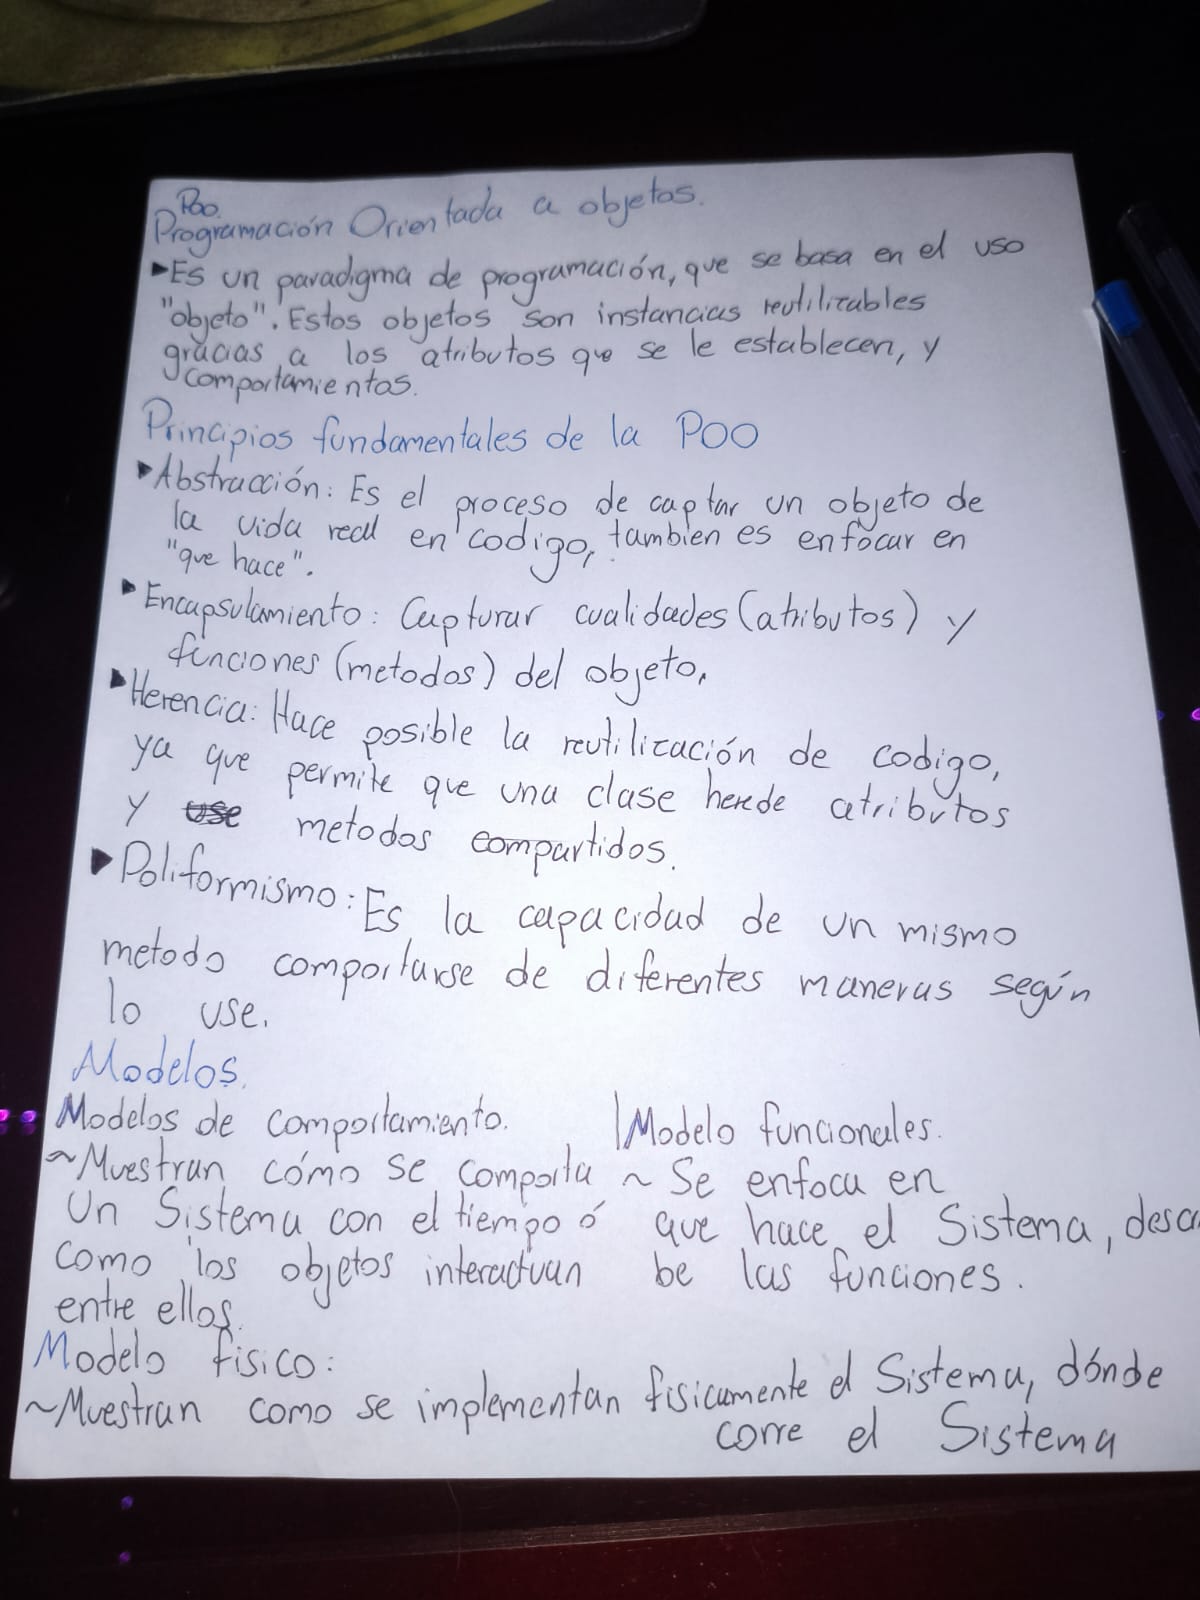 Poo.
Programación Orientada a objetos.
▶Es un paradigma de programación, que se basa en el uso
"objeto". Estos objetos son instancias reutilizables
gracias a los atributos que se le establecen, y
comportamientos.
Principios fundamentales de la POO
▶Abstracción: Es el proceso de captar un objeto de
la vida real en codigo, tambien es enfocar en
"que hace".
▶Encapsulamiento: Capturar cualidades (atributos) y
funciones (metodos) del objeto.
▶Herencia: Hace posible la reutilización de codigo,
ya que permite que una clase herede atributos
y use metodos compartidos.
▶Poliformismo: Es la capacidad de un mismo
metodo comportarse de diferentes maneras según
lo use.
Modelos.
Modelos de comportamiento. | Modelo funcionales.
~Muestran cómo se comporta ~ Se enfoca en
Un Sistema con el tiempo ó que hace el Sistema, descri
como los objetos interactuan be las funciones.
entre ellos.
Modelo fisico:
~Muestran como se implementan fisicamente el Sistema, dónde
corre el Sistema